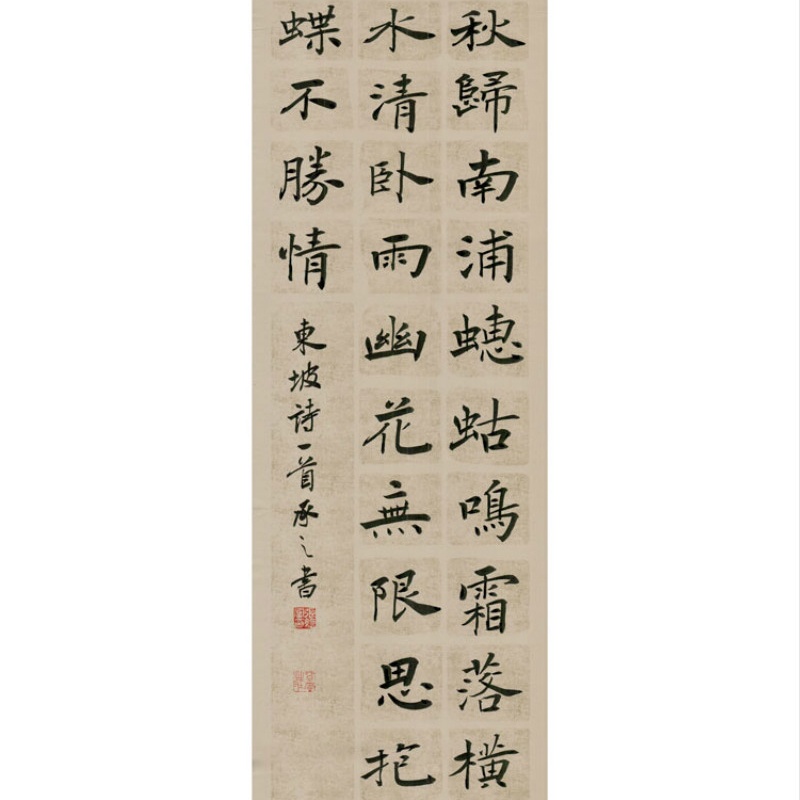 秋歸南浦蟪蛄鳴霜落橫
水清卧雨幽花無限思抱
蝶不勝情
東坡诗一首承之書